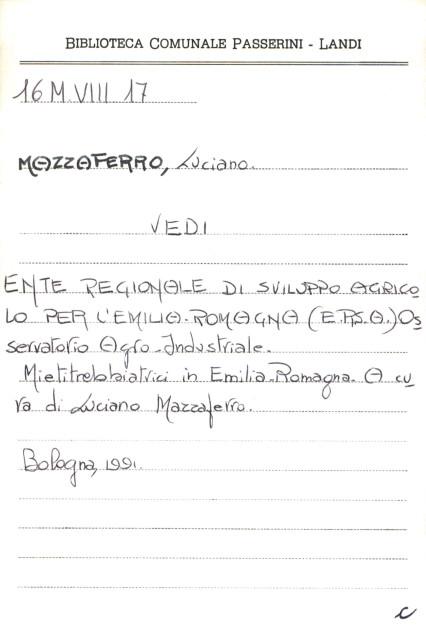 BIBLIOTECA COMUNALE PASSERINI - LANDI
16 M.VIII 17
MAZZAFERRO, Luciano.
VEDI
ENTE REGIONALE DI SVILUPPO AGRICO
LO PER L'EMILIA-ROMAGNA (E.R.S.A.) Os
servatorio Agro-Industriale.
Mietitrebbiatrici in Emilia-Romagna. A cu
ra di Luciano Mazzaferro.
Bologna, 1991.
C